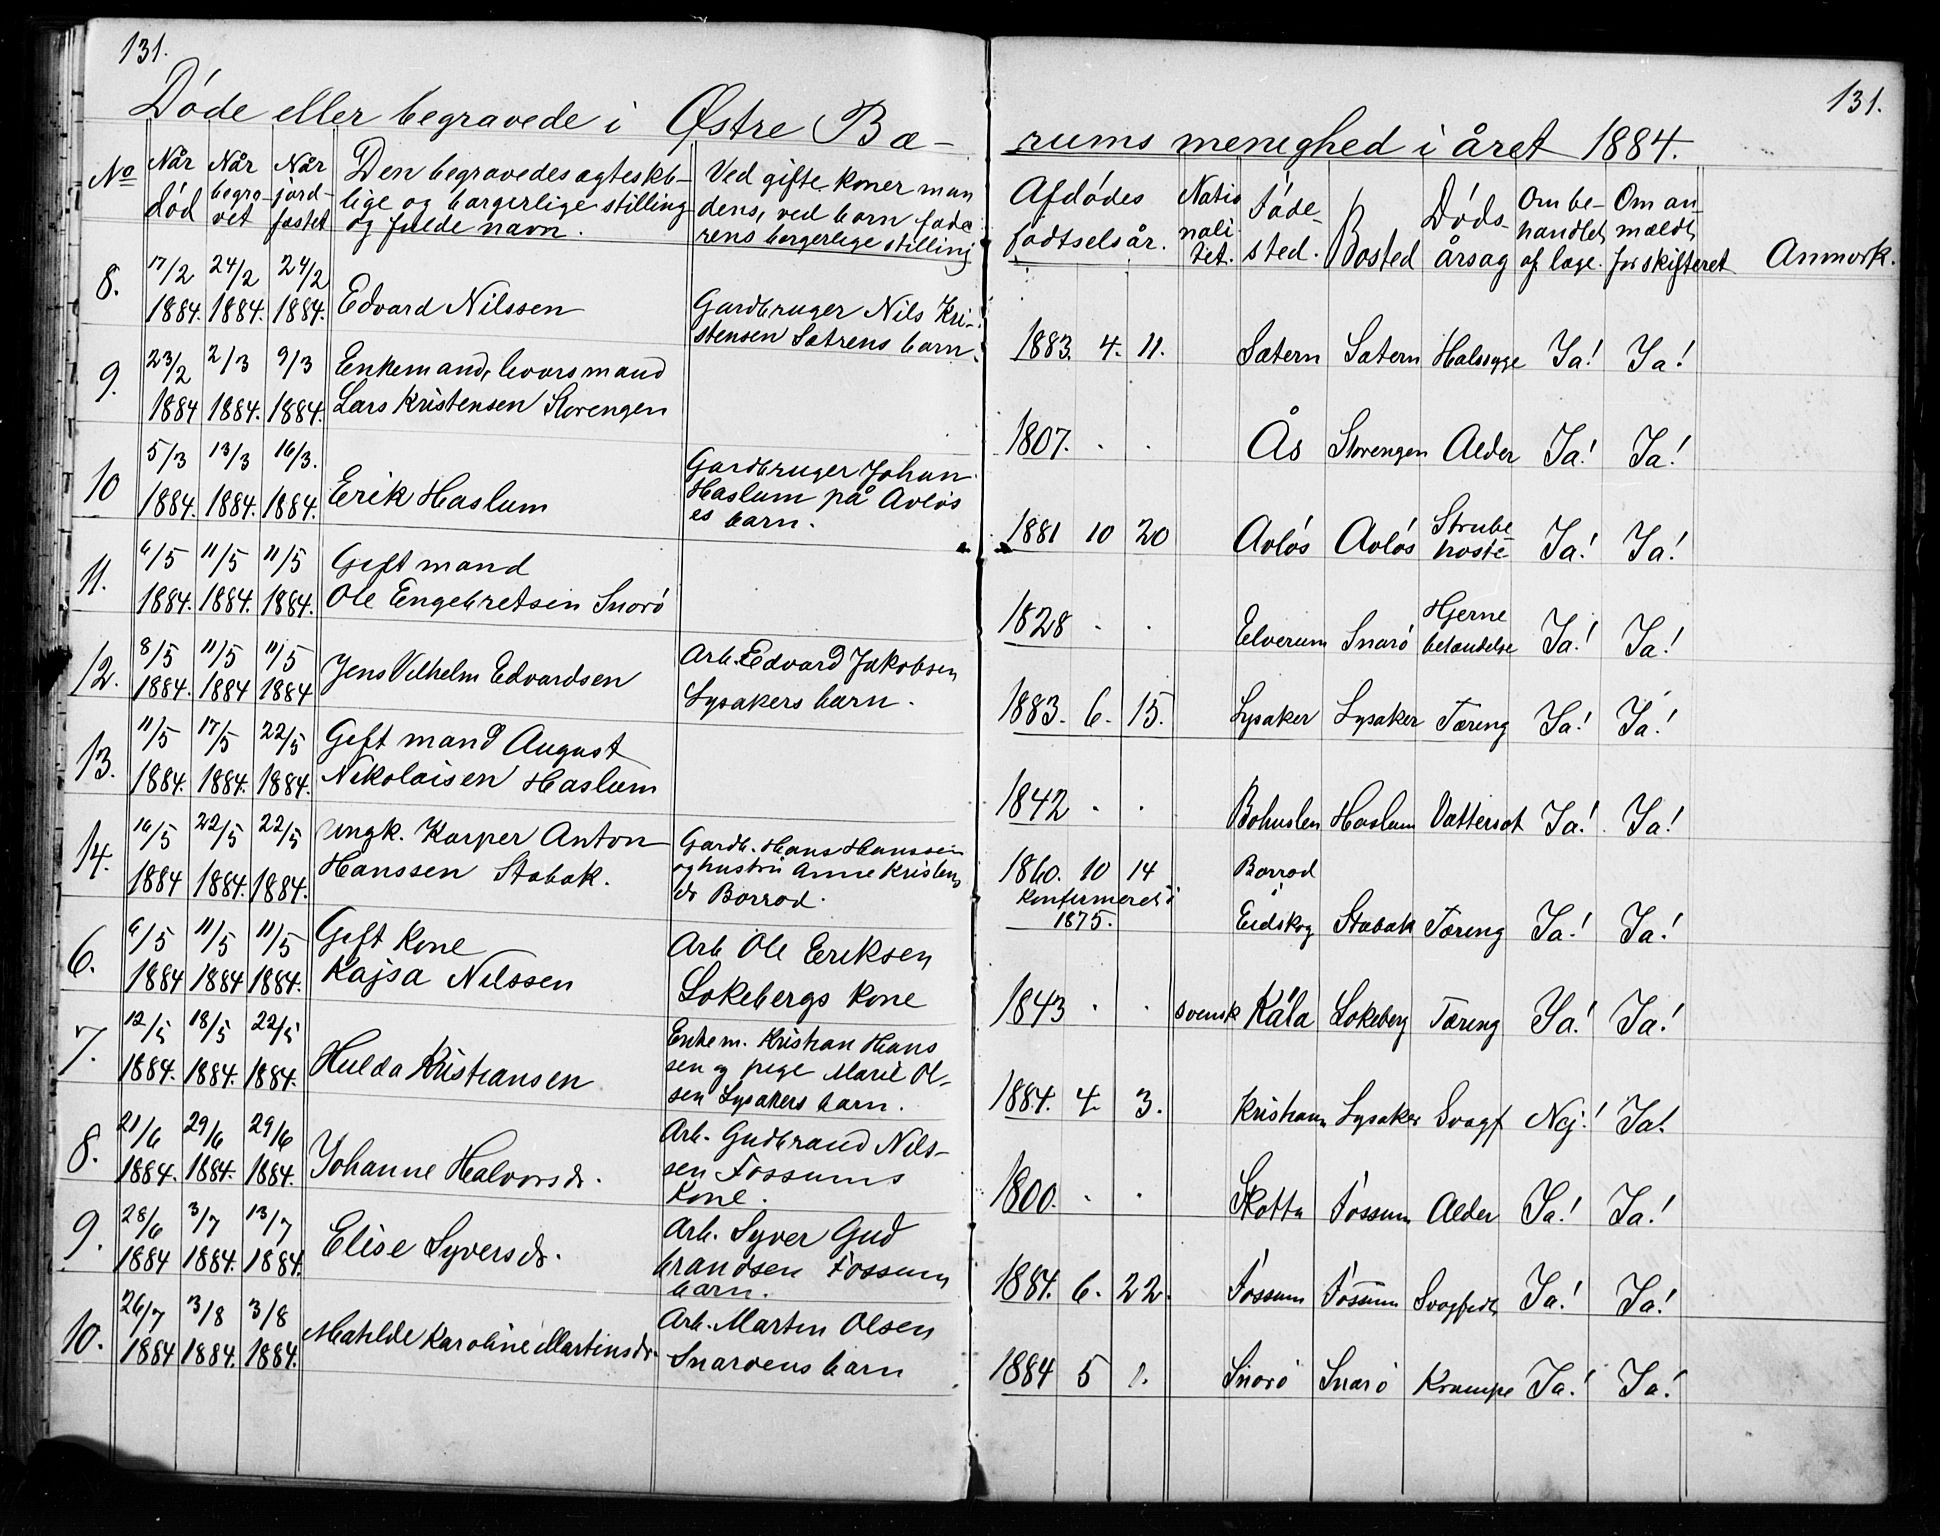 131.
131.
Døde eller begravede i Østre Bæ-
rums menighed i året 1884.
No
Når død
Når begravet
Når jordfæstet
Den begravedes ægteskb-
lige og borgerlige stilling
og fulde navn.
Ved gifte koner man
dens, ved børn fade
rens borgerlige stilling
Afdødes
fødtselsår.
Natio
nali
tet.
Føde-
sted.
Bosted
Døds-
årsag
Om be-
handlet
af læge.
Om an-
mældt
for skifteret
Anmærk.
8. 17/2 24/2 24/2
1884. 1884. 1884. Edvard Nilssen
Gardbruger Nils Kri-
stensen Sætrens barn.
1883. 4. 11. Sætern Sætern Halssyge Ja! Ja!
9. 23/2 2/3 9/3 Enkemand, hvorsmand
1884 1884. 1884. Lars Kristensen Storengen
1807. . . Ås Storengen Alder Ja! Ja!
10 5/3 13/3 16/3.
1884. 1884. 1884. Erik Haslum
Gardbruger Johan
Haslum på Avløs
es barn.
1881 10 20 Avløs Avløs Strube
hoste Ja! Ja!
11. 6/5 11/5 11/5 Gift mand
1884. 1884. 1884. Ole Engebretsen Snarø
1828 . . Elverum Snarø Hjerne
betændelse Ja! Ja!
12. 8/5 11/5 11/5
1884. 1884 1884 Jens Vilhelm Edvardsen
Arb. Edvard Jakobsen
Lysakers barn.
1883. 6. 15. Lysaker Lysaker Tæring Ja! Ja!
13. 11/5 17/5 22/5 Gift mand August
1884. 1884. 1884. Nikolaisen Haslum
1842 . . Bohuslen Haslum Vattersot Ja! Ja!
14. 16/5 22/5 22/5 Ungk. Karper Anton
1884 1884. 1884. Hanssen Stabæk.
Gardb. Hans Hanssen
og hustru Anne Kristens
dr Borrod.
1860. 10 14 Borrod
konfirmeret i
1875.
i
Eidskog Stabæk Tæring Ja! Ja!
6. 6/5 11/5 11/5 Gift kone
1884 1884 1884. Kajsa Nilssen
Arb Ole Eriksen
Løkebergs kone
1843 . . svensk Kåla Løkeberg Tæring Ja! Ja!
7. 12/5 18/5 22/5
1884. 1884. 1884. Hulda Kristiansen
Enkem. Kristian Hans
sen og pige Marie Ol-
sen Lysakers barn.
1884. 4 3. Kristiann Lysaker Svagf Nej! Ja!
8. 21/6 29/6 29/6
1884. 1884. 1884. Johanne Halvorsdr.
Arb. Gudbrand Nils-
sen Fossums
kone.
1800. . . Skotta Fossum Alder Ja! Ja!
9. 28/6 3/7 13/7
1884 1884. 1884. Elise Syversdr.
Arb. Syver Gud
brandsen Fossum
barn.
1884. 6. 22. Fossum Fossum Svagfødt Ja! Ja!
10. 26/7 3/8 3/8
1884 1884. 1884. Matilde Karoline Martinsdr.
Arb. Martin Olsen
Snarøens barn
1884 5 1. Snarø Snarø Krampe Ja! Ja!